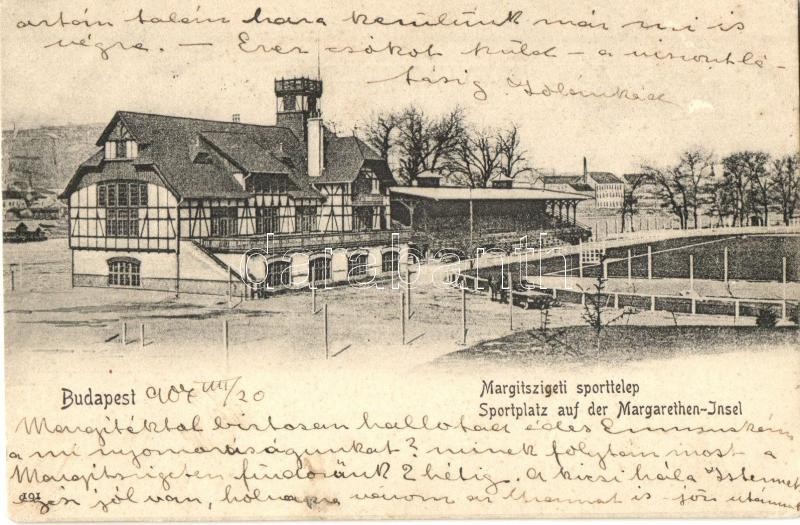 artán talán hara kerülünk már mi is
végre. — Ezer csókot küld — a viszontlá-
tásig Jolánkád
darabanth
Budapest 907 VIII/20
Margitszigeti sporttelep
Sportplatz auf der Margarethen-Insel
Margitéktol biztosan hallottad édes Emmuskám
a mi nyomorúságunkat? minek folytán most a
Margitszigeten fürdőzünk 2 hétig. A kicsi hála Istennek
egész jól van, holnap várom az
191